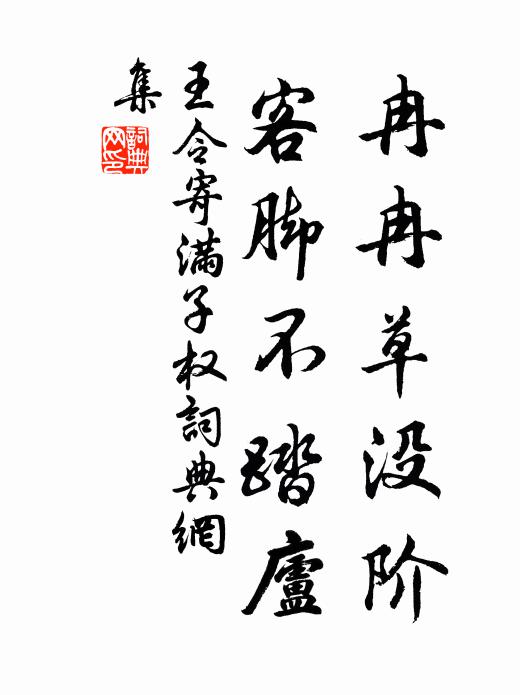 冉冉草没阶
客脚不踏廬
王令寄满子权詞典網
集
詞典
网印